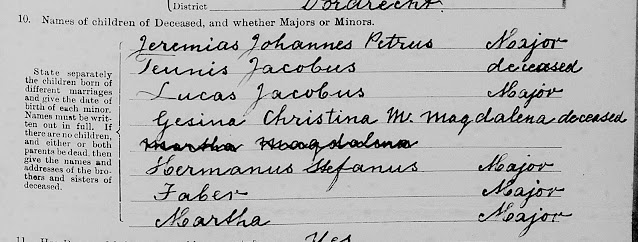 District Dordrecht.
10. Names of children of Deceased, and whether Majors or Minors.
Jeremias Johannes Petrus Major
Teunis Jacobus deceased
Lucas Jacobus Major
Gesina Christina M. Magdalena deceased
Martha Magdalena
Hermanus Stefanus Major
Faber Major
Martha Major
State separately
the children born of
different marriages
and give the date of
birth of each minor.
Names must be writ-
ten out in full. If
there are no children,
and either or both
parents be dead, then
give the names and
addresses of the bro-
thers and sisters of
deceased.
11. Yes